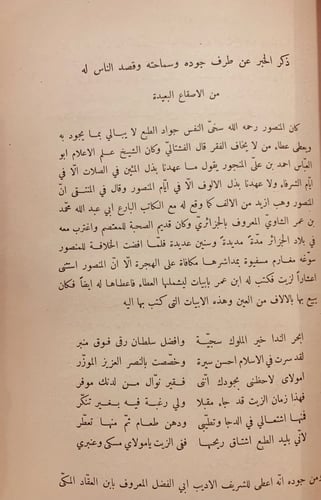 ذكر الخبر عن طرف جوده وسماحته وقصد الناس له
من الاصقاع البعيدة
كان المنصور رحمه الله سخىّ النفس جواد الطبع لا يبالى بما يجود به
ويعطى عطاء من لا يخاف الفقر قال الفشتالىّ وكان الشيخ علم الاعلام ابو
العبّاس احمد بن علىّ المنجور يقول ما عهدنا بذل المئين فى الصلات الّا فى
ايّام الشرفاء ولا عهدنا بذل الالوف الّا فى ايّام المنصور وقال فى المنتقى انّ
المنصور وهب ازيد من الالف كما وقع له مع الكاتب البارع ابى عبد الله محمّد
بن عمر الشاوىّ المعروف بالجزائرىّ وكان قديم الصحبة للمعتصم واغترب معه
فى بلاد الجزائر مدّة مديدة وسنين عديدة فلمّا افضت الخلافة للمنصور
سوّغه مغارم مسفيوة بمداشرها مكافاة على الهجرة الّا انّ المنصور استثنى
اعشارا لزيت فكتب له ابن عمر بابيات ليشملها العطاء فاعطاها له ايضا فكان
يبيع بها بالالاف من العين وهذه الابيات التى كتب بها اليه
ابحر الندا خير الملوك سجيّة وافضل سلطان رقى فوق منبر
لقد سرت فى الاسلام احسن سيرة وخصّصت بالنصر العزيز الموزّر
امولاى لاحظنى بجودك انّنى فقير نوّال من لدنك موفر
فهذا زمان الزيت قد جاء مقبلا ولى رغبة فيه بغير تنكّر
فمنها اشتعالى فى الدجا وتطيّبى ودهن طعام ثمّ منها تعطّر
فانّى بليد الطبع اشتاق ريحها ففى الزيت يامولاى مسكى وعنبرى
ومن جوده انّه اعطى للشريف الاديب ابى الفضل المعروف بابن العقّاد المكّىّ